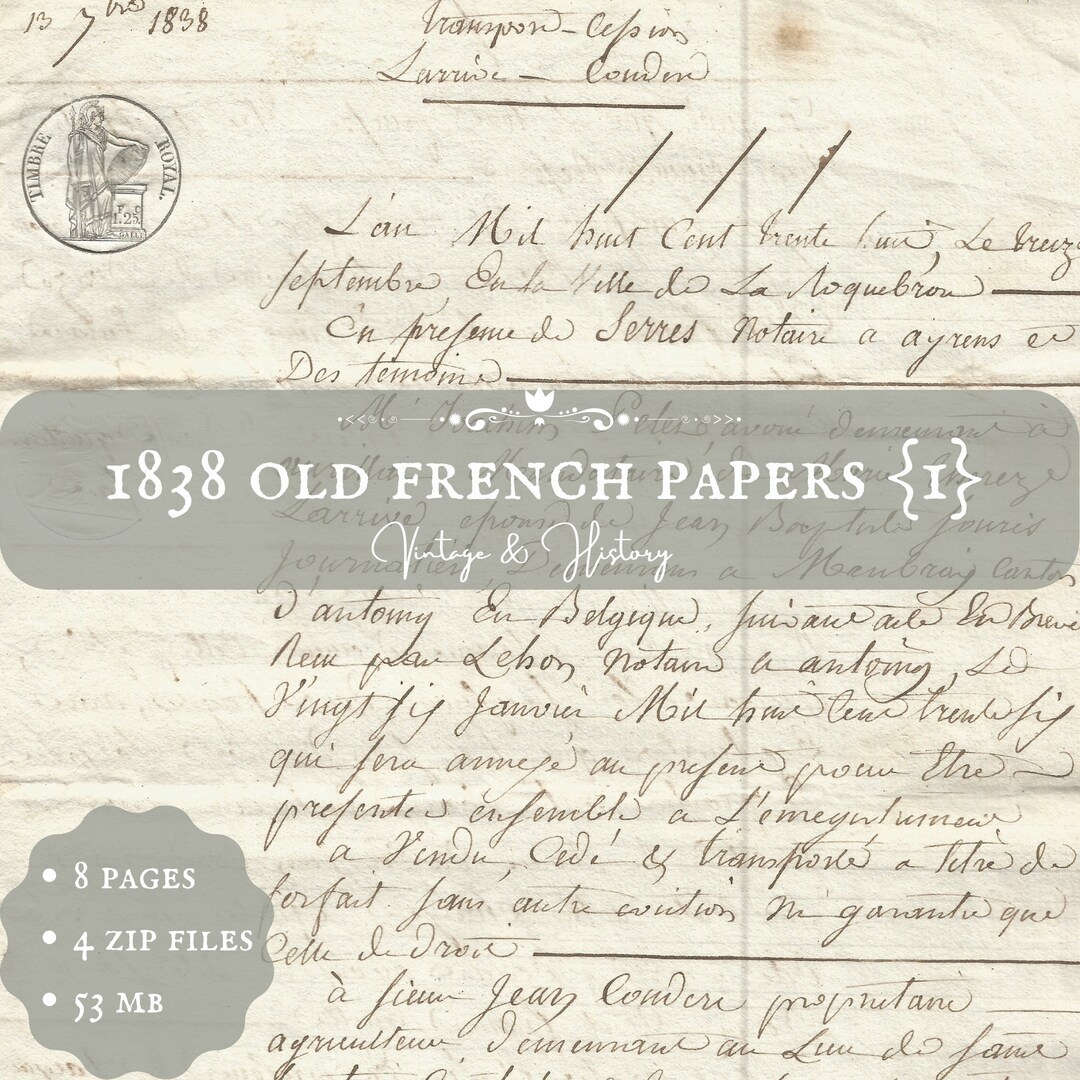 13 7bre 1838
Transport-Cession
Larrive — Couderc
TIMBRE ROYAL.
F. C.
1.25.
L'an Mil huit Cent trente huit, Le treize
septembre, En la Ville de La Roquebrou
En presence de Serres Notaire a ayrens et
Des temoins
Me Peter avoué demeurant à
1838 OLD FRENCH PAPERS {1}
Vintage & History
Larrive, epouse de Jean Baptiste Jouris
Journalier, Demeurant a Maubray Canton
d'antoing En Belgique, suivant acte En Brevet
Recu par Lebon Notaire a antoing, Le
Vingt six Janvier Mil huit Cent trente six
qui sera annexé au present pour Etre
presenté ensemble a L'enregistrement
a Vendu, Cedé & transporté a titre de
forfait sans autre eviction ni garantie que
Celle de droit
à sieur Jean Couderc proprietaire
agriculteur demeurant au Lieu de
• 8 PAGES
• 4 ZIP FILES
• 53 MB